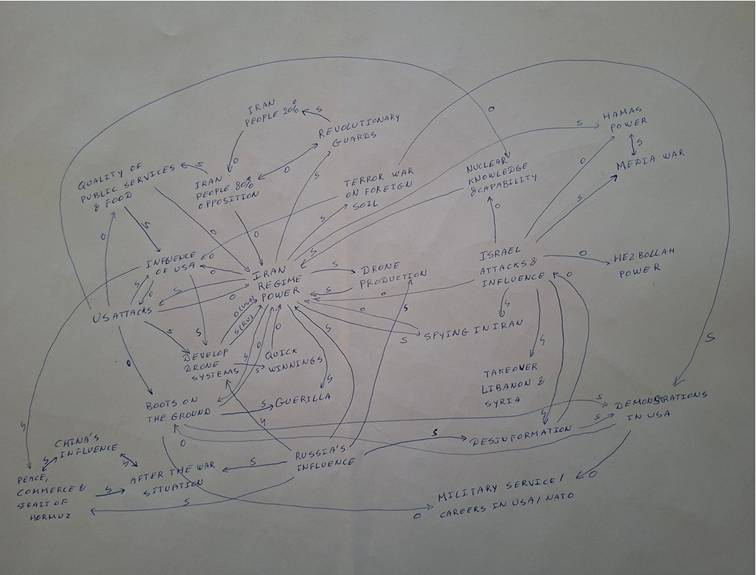 IRAN
PEOPLE 20%
S
REVOLUTIONARY
GUARDS
O
O
HAMAS
POWER
S
S
MEDIA WAR
QUALITY OF
PUBLIC SERVICES
& FOOD
S
O
O
IRAN
PEOPLE 80%
OPPOSITION
S
TERROR WAR
ON FOREIGN
SOIL
NUCLEAR
KNOWLEDGE
& CAPABILITY
O
S
S
O
O
S
O
INFLUENCE
OF USA
O
O
S
IRAN
REGIME
POWER
S
DRONE
PRODUCTION
S
ISRAEL
ATTACKS &
INFLUENCE
O
HEZBOLLAH
POWER
O
S
S
O
US ATTACKS
O
S
S
SPYING IN IRAN
S
S
S
DEVELOP
DRONE
SYSTEMS
S
QUICK
WINNINGS
O
O
S
TAKEOVER
LIBANON &
SYRIA
S
O
BOOTS ON
THE GROUND
O
S
GUERILLA
S
S
S
DEMONSTRATIONS
IN USA
S
CHINA'S
INFLUENCE
S
S
O
RUSSIA'S
INFLUENCE
S
DESINFORMATION
S
PEACE,
COMMERCE &
STRAIT OF
HORMUZ
S
AFTER THE WAR
SITUATION
S
S
O
MILITARY SERVICE/
CAREERS IN USA/NATO
O